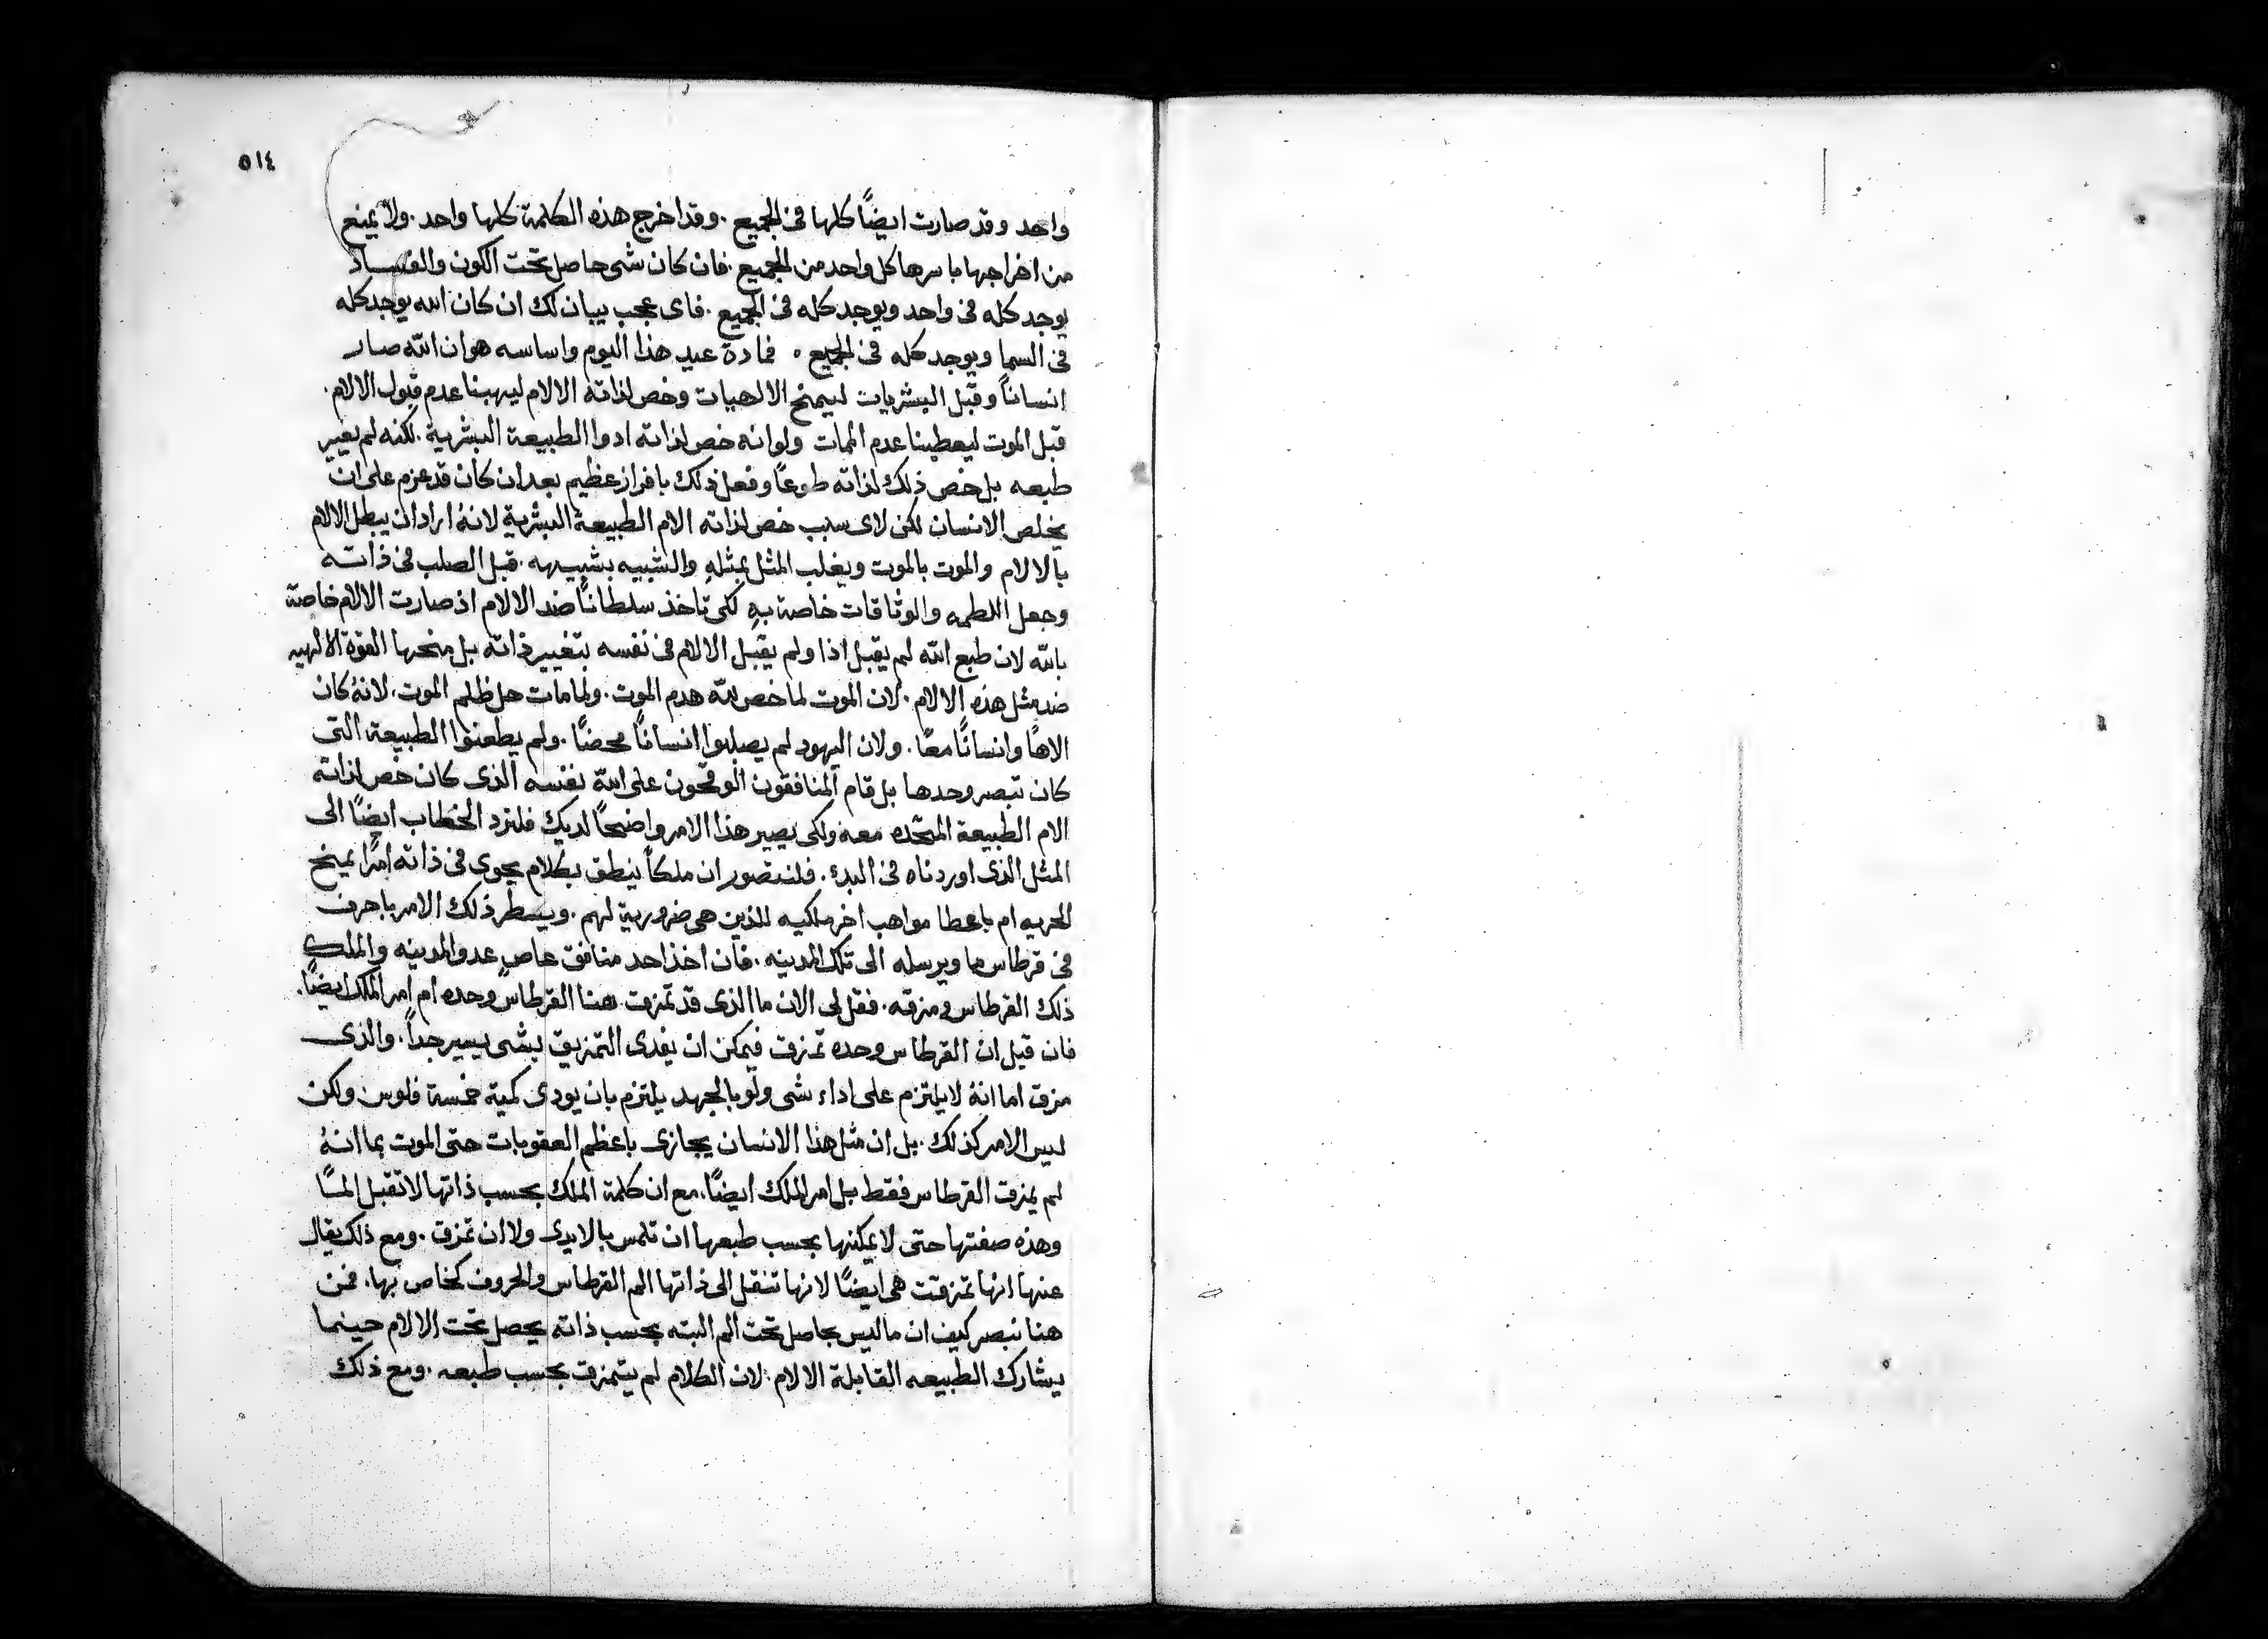 ٥١٤
واحد وقد صارت ايضًا كلها فى الجميع . وقد اخرج هذه الكلمة كلها واحد . ولا يمنع
من اخراجها باسرها كل واحد من الجميع . فان كان شى حاصل تحت الكون والفساد
يوجد كله فى واحد ويوجد كله فى الجميع . فاى عجب يبان لك ان كان الله يوجد كله
فى السما ويوجد كله فى الجميع ٥ فمادة عيد هذا اليوم واساسه هو ان الله صار
انسانًا وقبل البشريات ليمنح الالهيات وخص لذاته الالام ليهبنا عدم قبول الالام .
قبل الموت ليعطينا عدم الممات ولو انه خص لذاته ادوا الطبيعة البشرية . لكنه لم يغيير
طبعه بل خص ذلك لذاته طوعًا وفعل ذلك بافراز عظيم بعد ان كان قد عزم على ان
يخلص الانسان لكن لاى سبب خص لذاته الام الطبيعة البشرية لانهُ اراد ان يبطل الالام
بالالام والموت بالموت ويغلب المثل بمثلهِ والشبيه بشبيهه . قبل الصلب فى ذاته
وجعل اللطمه والوثاقات خاصة بهِ لكى تاخذ سلطانًا ضد الالام اذ صارت الالام خاصة
بالله لان طبع الله لم يقبل اذا ولم يقبل الالام فى نفسه بتغيير ذاته بل منحها القوة الالهيه
ضد مثل هذه الالام . لان الموت لما خص لله هدم الموت . ولما مات حل ظلم الموت . لانهُ كان
الاهًا وانسانًا معًا . ولان اليهود لم يصلبوا انسانًا محضًا . ولم يطعنوا الطبيعة التى
كان تبصر وحدها بل قام المنافقون الوقحون على الله نفسه الذى كان خص لذاته
الام الطبيعة المتحده معه ولكى يصير هذا الامر واضحًا لديك فلنرد الخطاب ايضًا الى
المثل الذى اوردناه فى البدء . فلنتصور ان ملكًا ينطق بكلام يحوى فى ذاته امرًا يمنح
الحريه ام باعطا مواهب اخر ملكيه للذين هى ضرورية لهم . ويسطر ذلك الامر باحرف
فى قرطاس ما ويرسله الى تلك المدينه . فان اخذ احد منافق عاصٍ عدو المدينه والملك
ذلك القرطاس ومزقه . فقل لى الان ما الذى قد تمزق هنا القرطاس وحده ام امر الملك ايضًا .
فان قيل ان القرطاس وحده تمزق فيمكن ان يفدى التمزيق بشى يسير جداً . والذى
مزق اما انهُ لا يلتزم على اداء شى ولو بالجهد يلتزم بان يودى كمية خمسة فلوس ولكن
ليس الامر كذلك . بل ان مثل هذا الانسان يجازى باعظم العقوبات حتى الموت بما انهُ
لم يمزق القرطاس فقط بل امر الملك ايضًا . مع ان كلمة الملك بحسب ذاتها لا تقبل المسًا
وهذه صفتها حتى لا يمكنها بحسب طبعها ان تلمس بالايدى ولا ان تمزق . ومع ذلك يقال
عنها انها تمزقت هى ايضًا لانها تنقل الى ذاتها الم القرطاس والحروف كخاص بها . فمن
هنا نبصر كيف ان ما ليس بحاصل تحت الم البته بحسب ذاته يحصل تحت الالام حينما
يشارك الطبيعه القابلة الالام . لان الكلام لم يتمزق بحسب طبعه . ومع ذلك